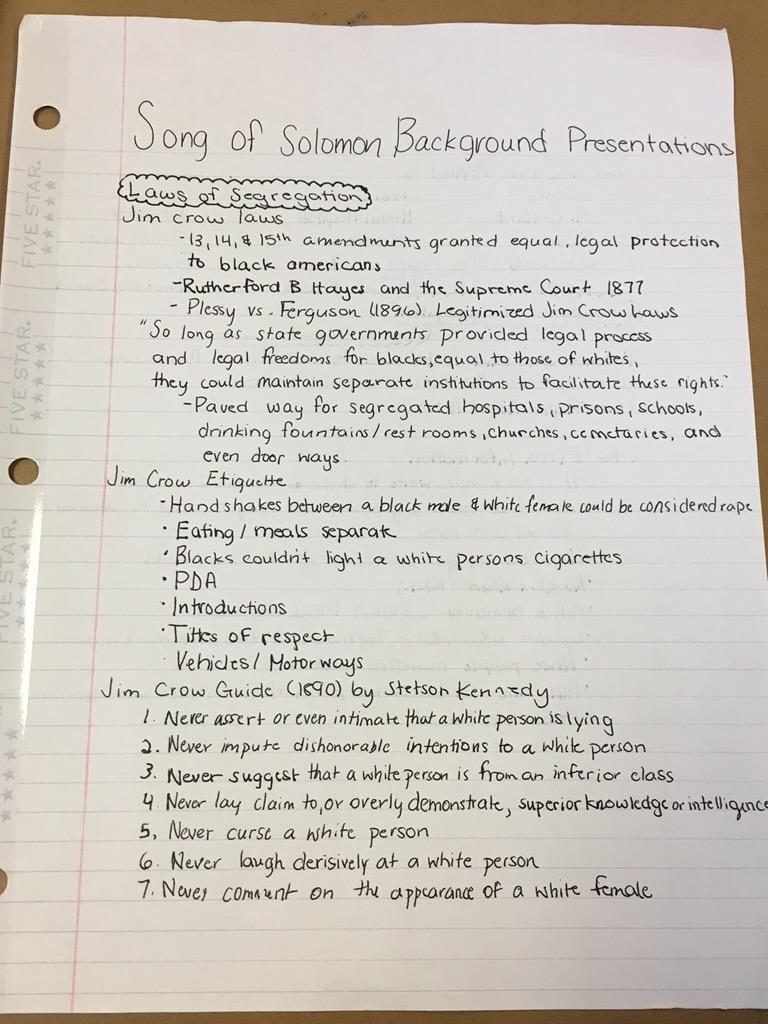 Song of Solomon Background Presentations
Laws of Segregation
Jim crow laws
- 13, 14, & 15th amendments granted equal, legal protection
to black americans
- Rutherford B Hayes and the Supreme Court 1877
- Plessy vs. Ferguson (1896). Legitimized Jim Crow Laws
"So long as state governments provided legal process
and legal freedoms for blacks, equal to those of whites,
they could maintain separate institutions to facilitate these rights."
- Paved way for segregated hospitals, prisons, schools,
drinking fountains/rest rooms, churches, cemetaries, and
even door ways.
Jim Crow Etiquette
- Hand shakes between a black male & white female could be considered rape
• Eating / meals separate
• Blacks couldn't light a white persons cigarettes
• PDA
• Introductions
• Titles of respect
• Vehicles / Motorways
Jim Crow Guide (1890) by Stetson Kennedy
1. Never assert or even intimate that a white person is lying
2. Never impute dishonorable intentions to a white person
3. Never suggest that a white person is from an inferior class
4 Never lay claim to, or overly demonstrate, superior knowledge or intelligence
5, Never curse a white person
6. Never laugh derisively at a white person
7. Never comment on the appearance of a white female
FIVE STAR.
FIVE STAR.
FIVE STAR.